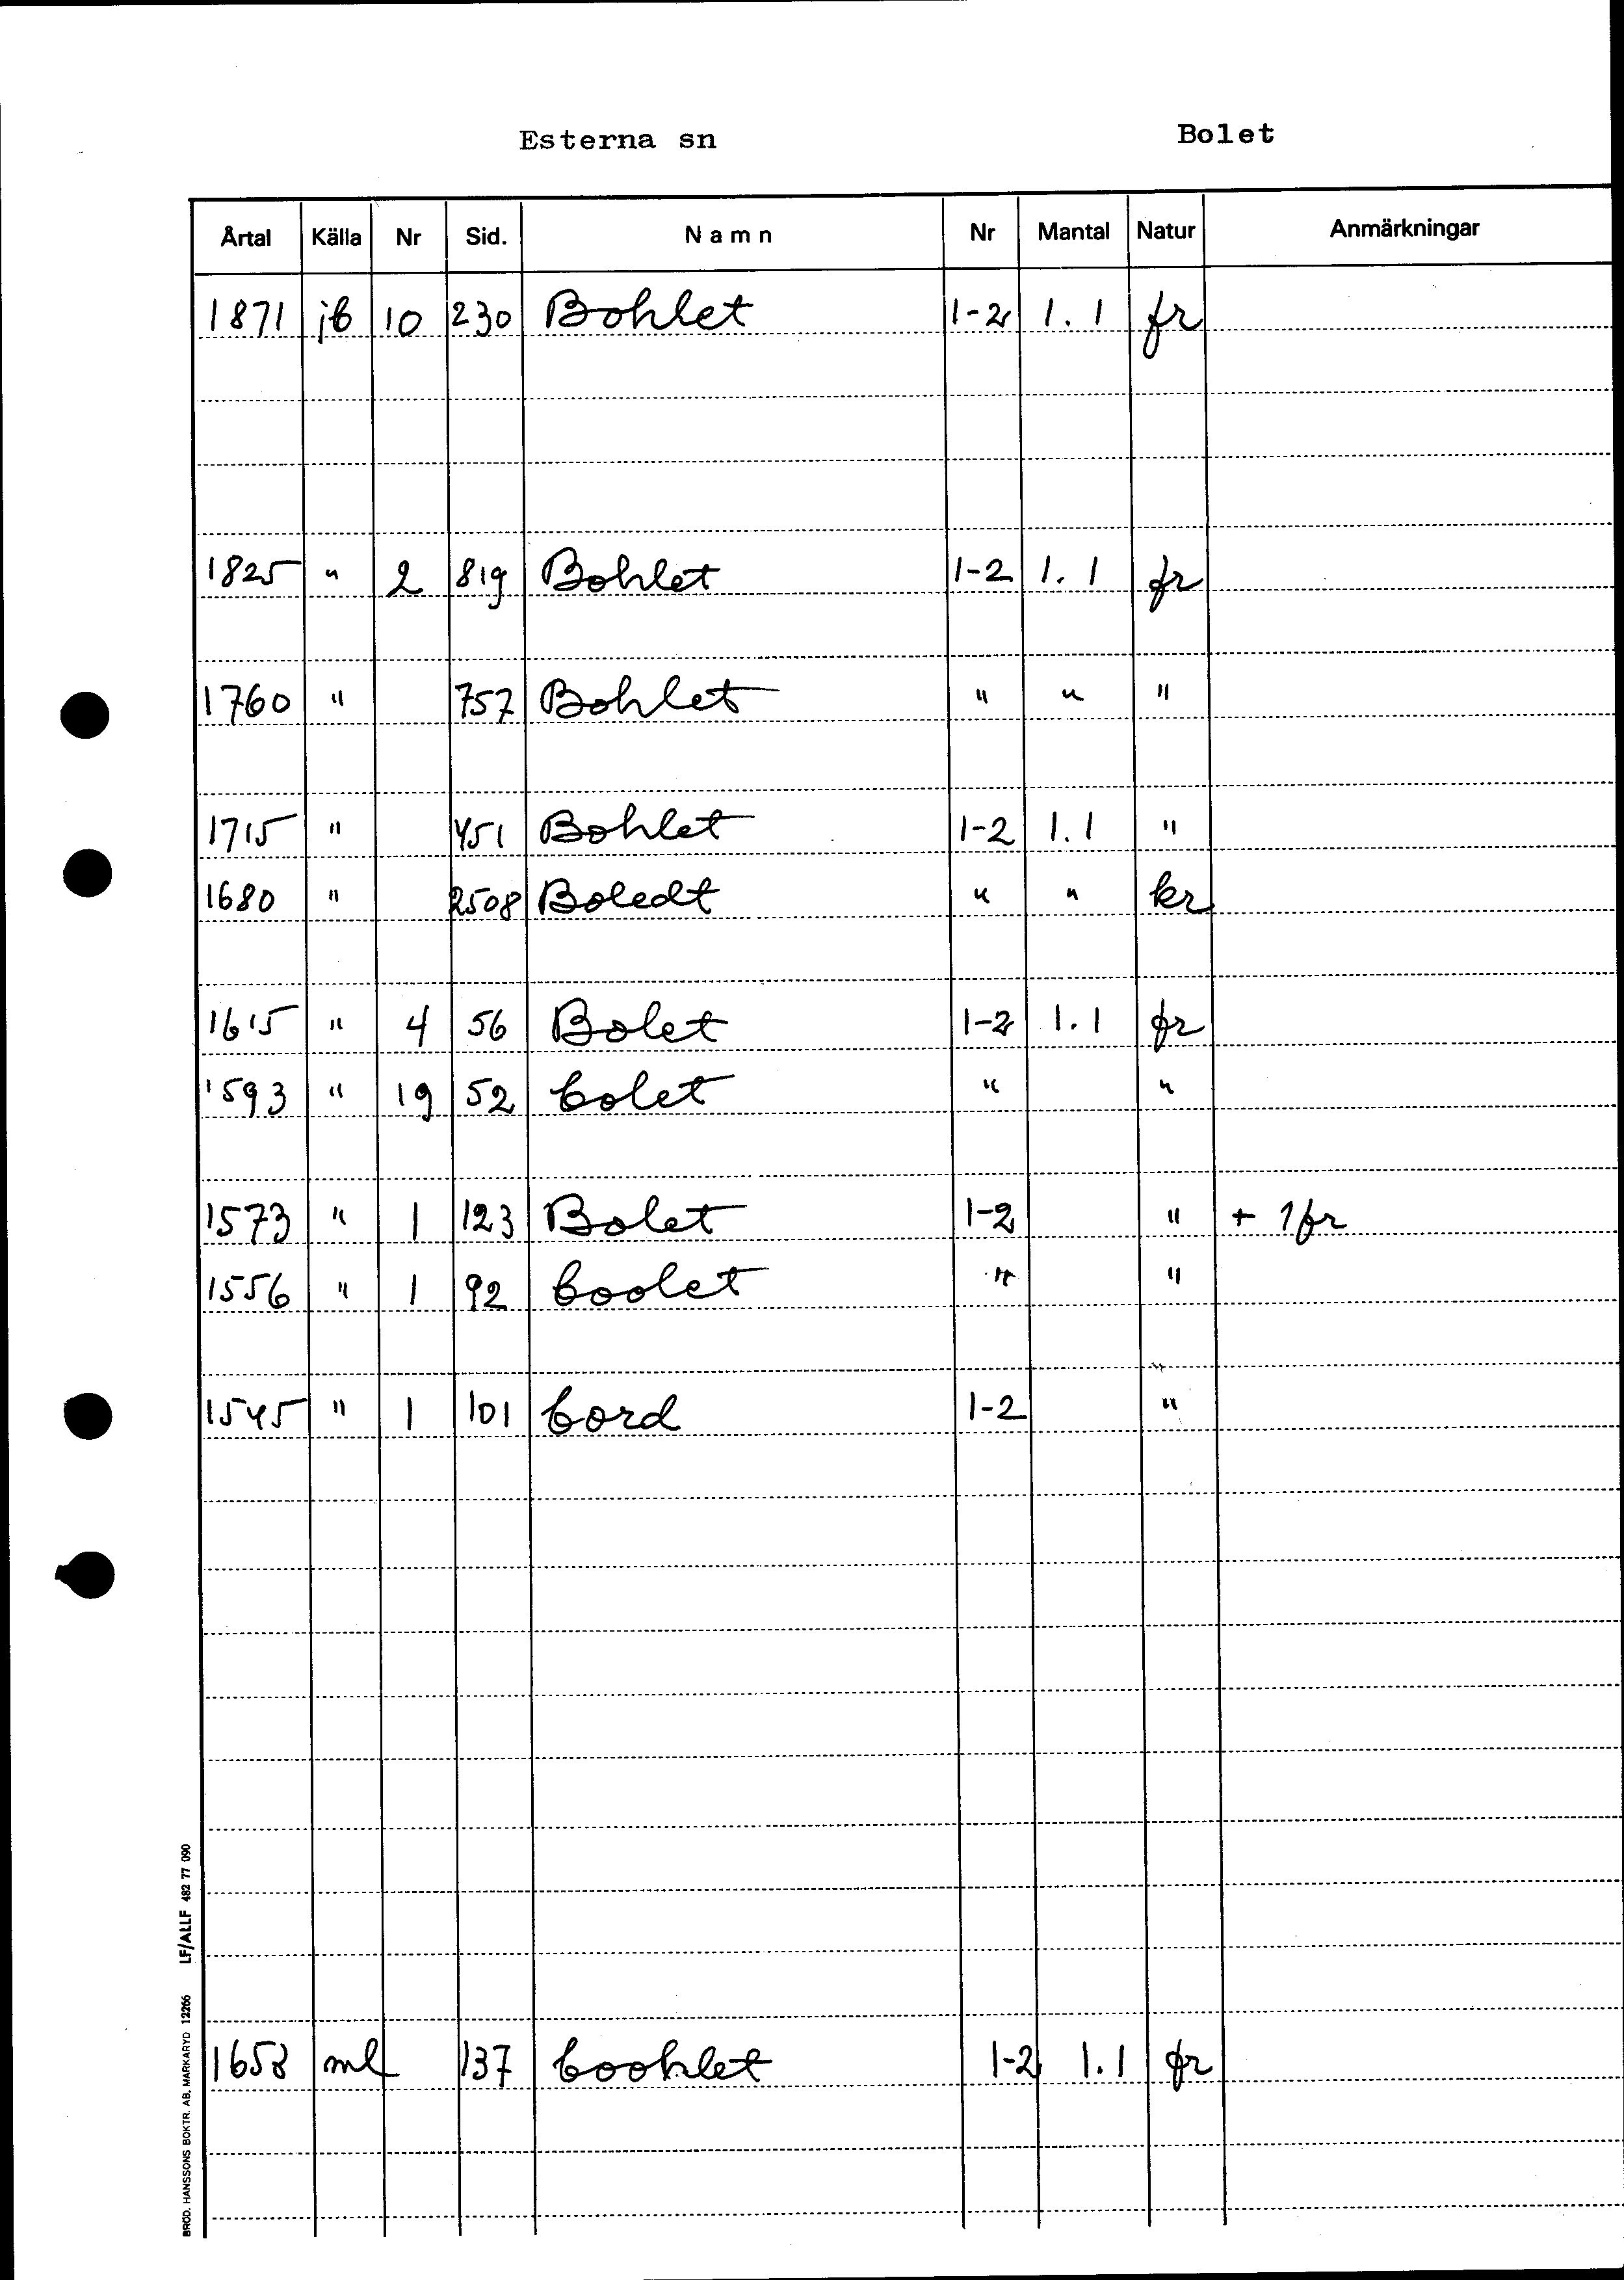 Esterna sn Bolet
Årtal Källa Nr Sid. Namn Nr Mantal Natur Anmärkningar
1871 jb 10 230 Bohlet 1-2 1.1 fr
1825 " 2 819 Bohlet 1-2 1.1 fr
1760 " 757 Bohlet " " "
1715 " 451 Bohlet 1-2 1.1 "
1680 " 2508 Boledt " " kr
1615 " 4 56 Bolet 1-2 1.1 fr
1593 " 19 52 bolet " "
1573 " 1 123 Bolet 1-2 " + 1 fr
1556 " 1 92 boolet " "
1545 " 1 101 bord 1-2 "
1658 ml 137 boohlet 1-2 1.1 fr
BRÖD. HANSSONS BOKTR. AB, MARKARYD 12266 LF/ALLF 482 77 090